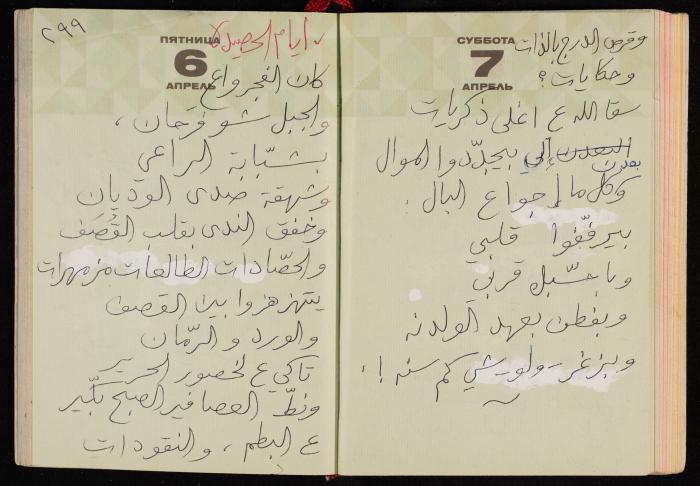 ٢٩٩
ايام الحصيده
ПЯТНИЦА
6
АПРЕЛЬ
كان الفجر واعي
والجبل شو فرحان ،
بشبّابة الراعي
وشهقة صدى الوديان
وخفق الندى بقلب القُصَف
والحصّادات الطالعات مزمهرات
يتهزهزوا بين القصف
والورد والرّمان
تاكي ع خصور الحرير
ونطّ العصافير الصبح بكّير
ع البطم ، والنقودات
СУББОТА
7
АПРЕЛЬ
وقرص الدرج بالذات
وحكايات ؟
سقا الله ع اغلى ذكريات
إلي بيجدّدوا الموال
بعدن
وكل ما إجوا ع البال :
بيرفّفوا قلبي
وبفطن بعهد الولدنه
وبزغر ولو رشي كم سنه !